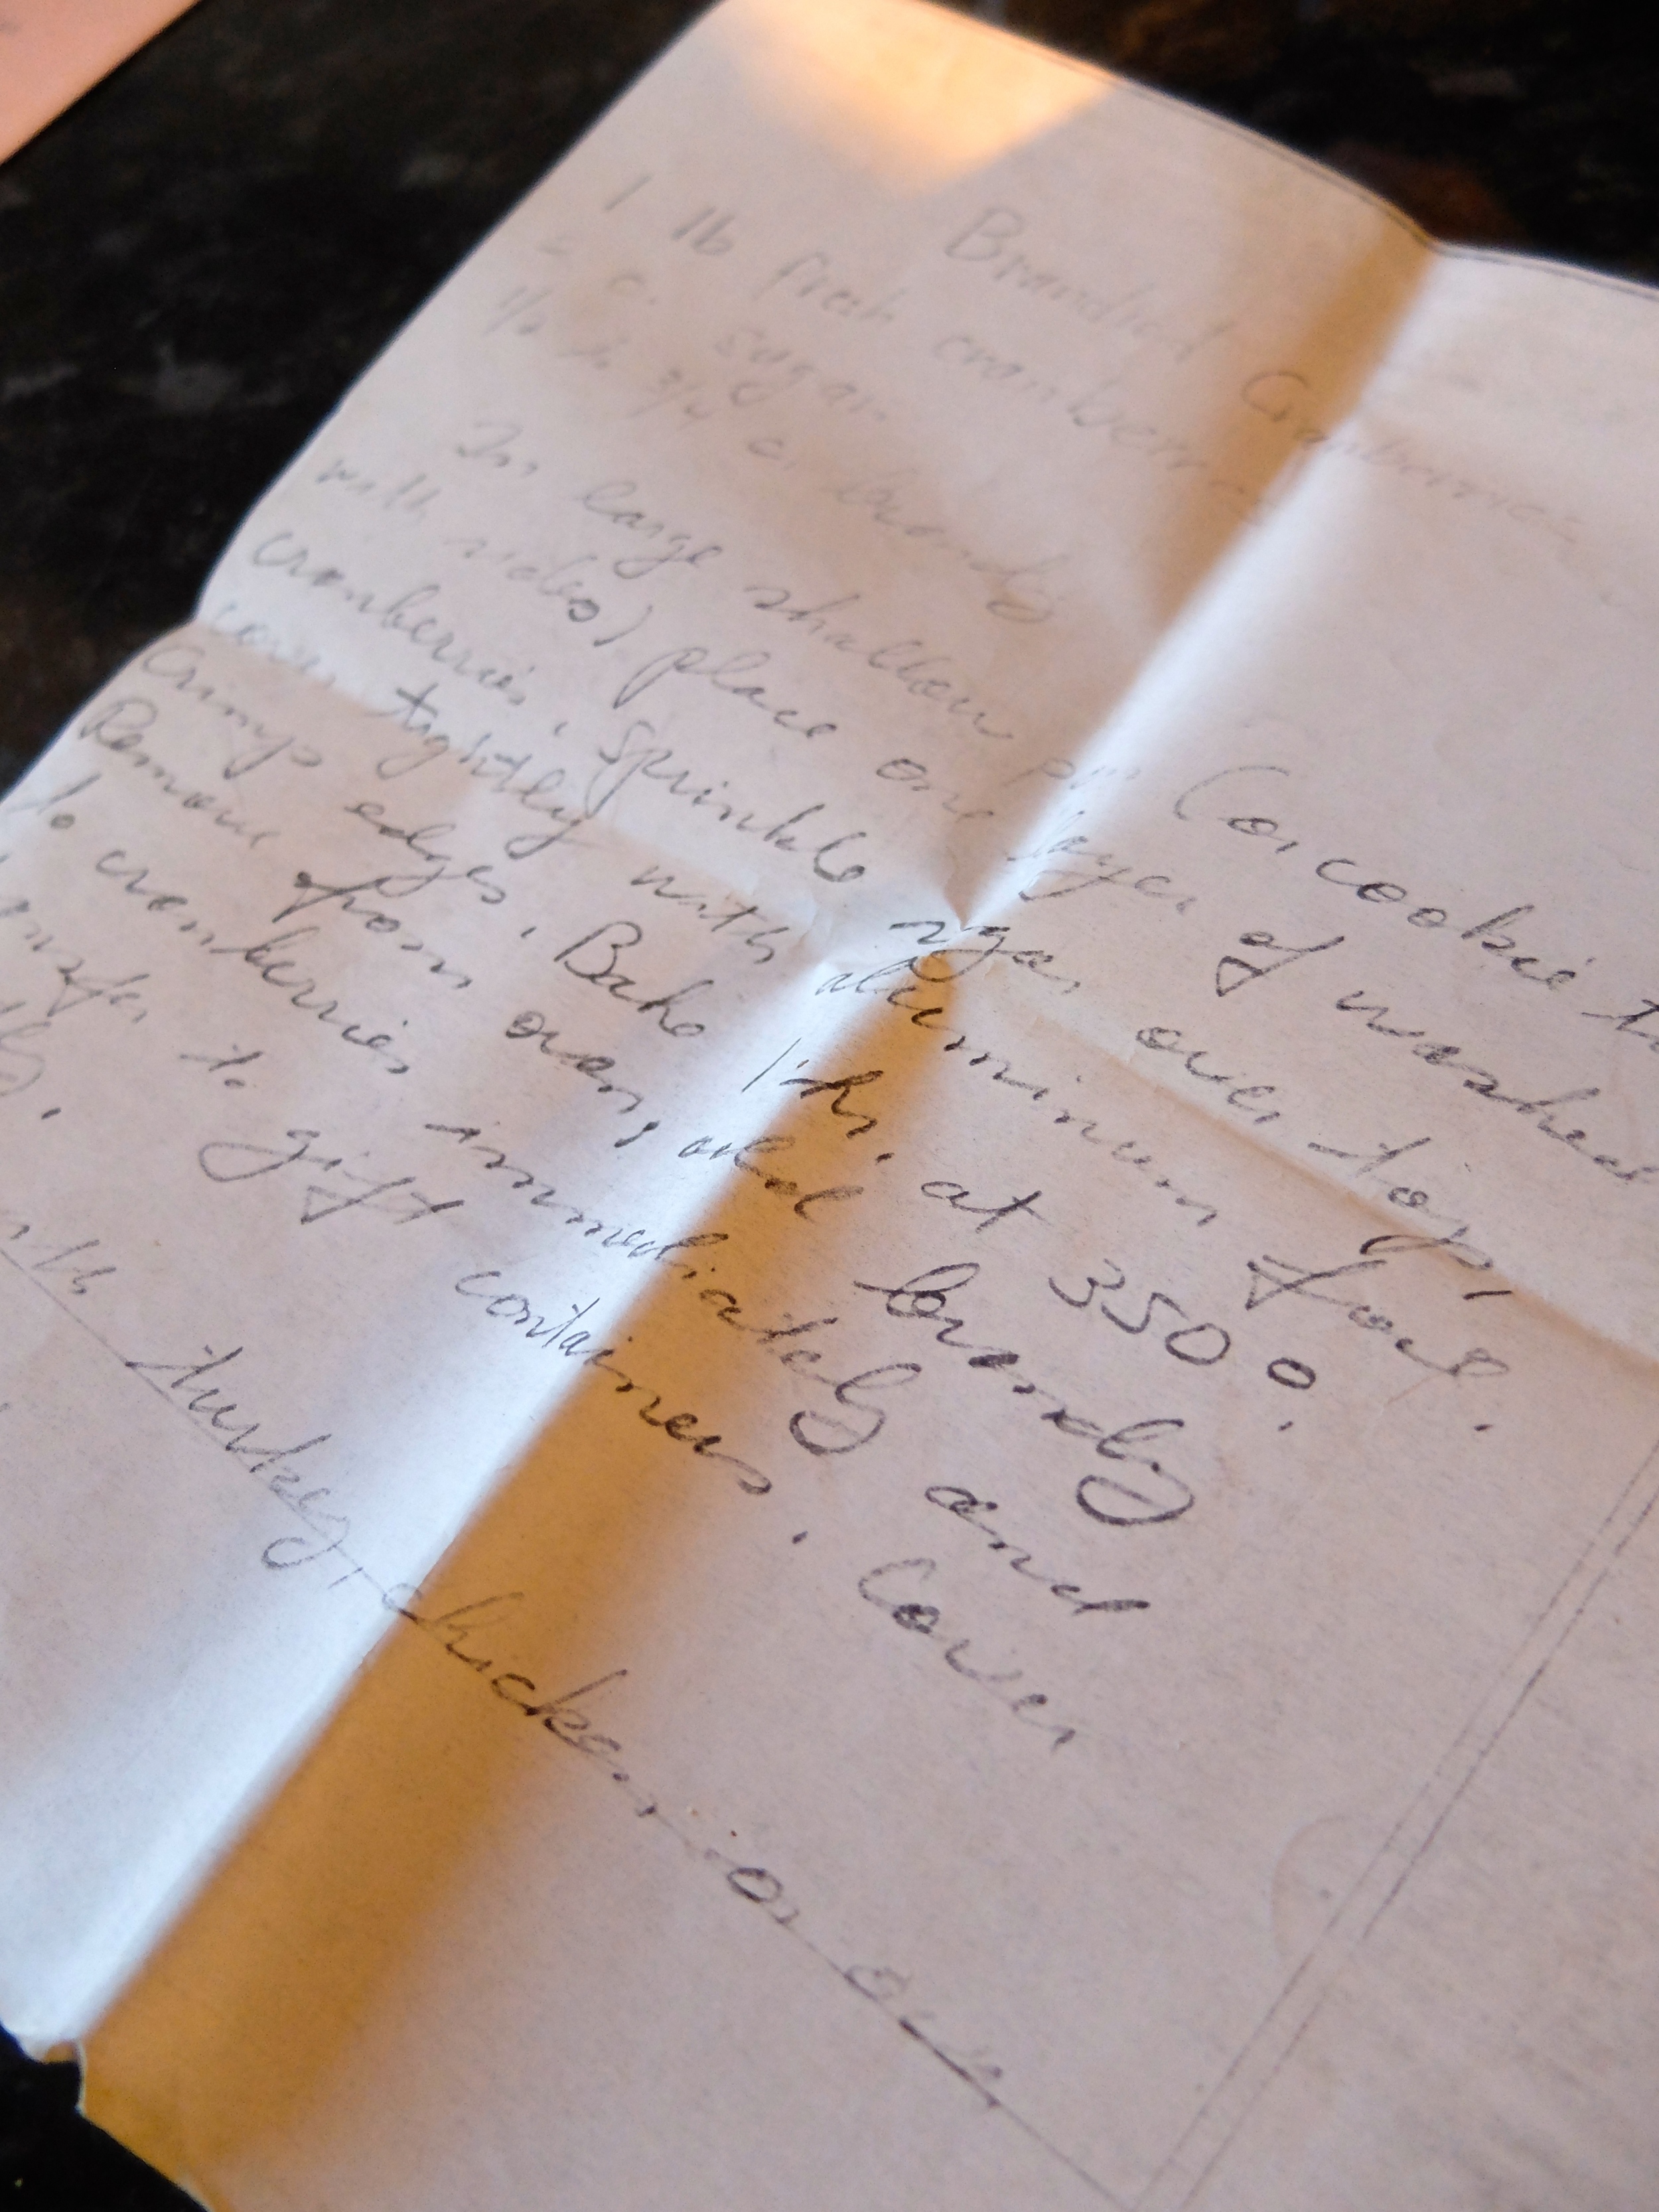 Brandied Cranberries
1 lb fresh cranberries
c. sugar
1/2 to 3/4 c. brandy
In large shallow pan (or cookie
with sides) place one layer of washed
cranberries. Sprinkle sugar over top,
cover tightly with aluminum foil.
Crimp edges. Bake 1 hr. at 350°.
Remove from oven, add brandy
to cranberries immediately and
to gift containers. Cover
turkey, chicken or